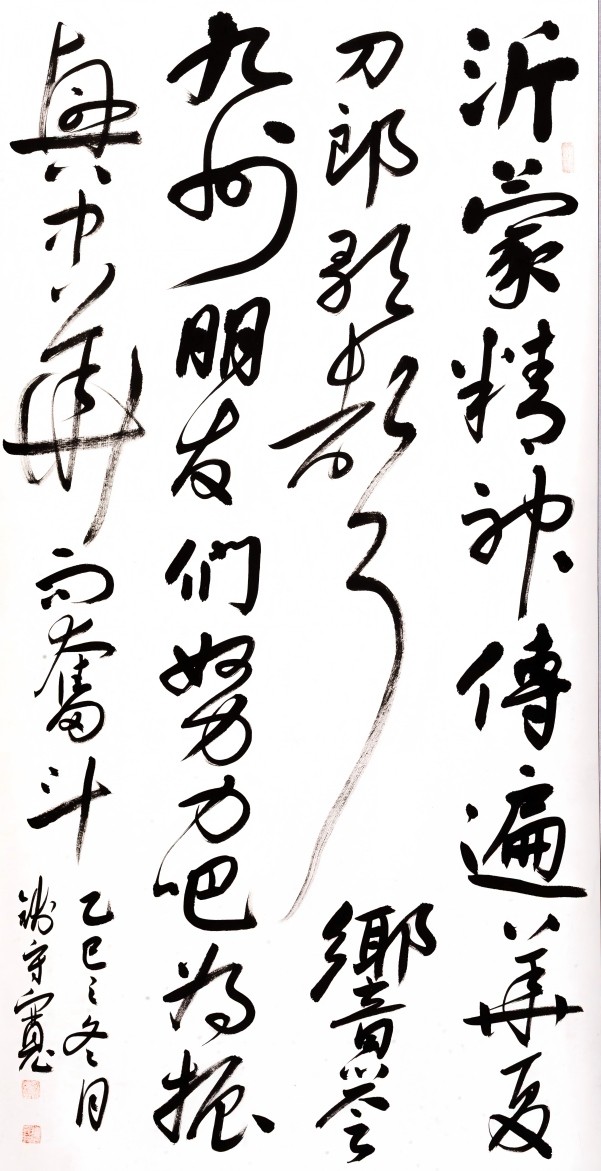 沂蒙精神傳遍華夏
刀郎歌聲響譽
九州朋友們努力吧為振
興中華而奮斗
乙巳之冬月
守寬